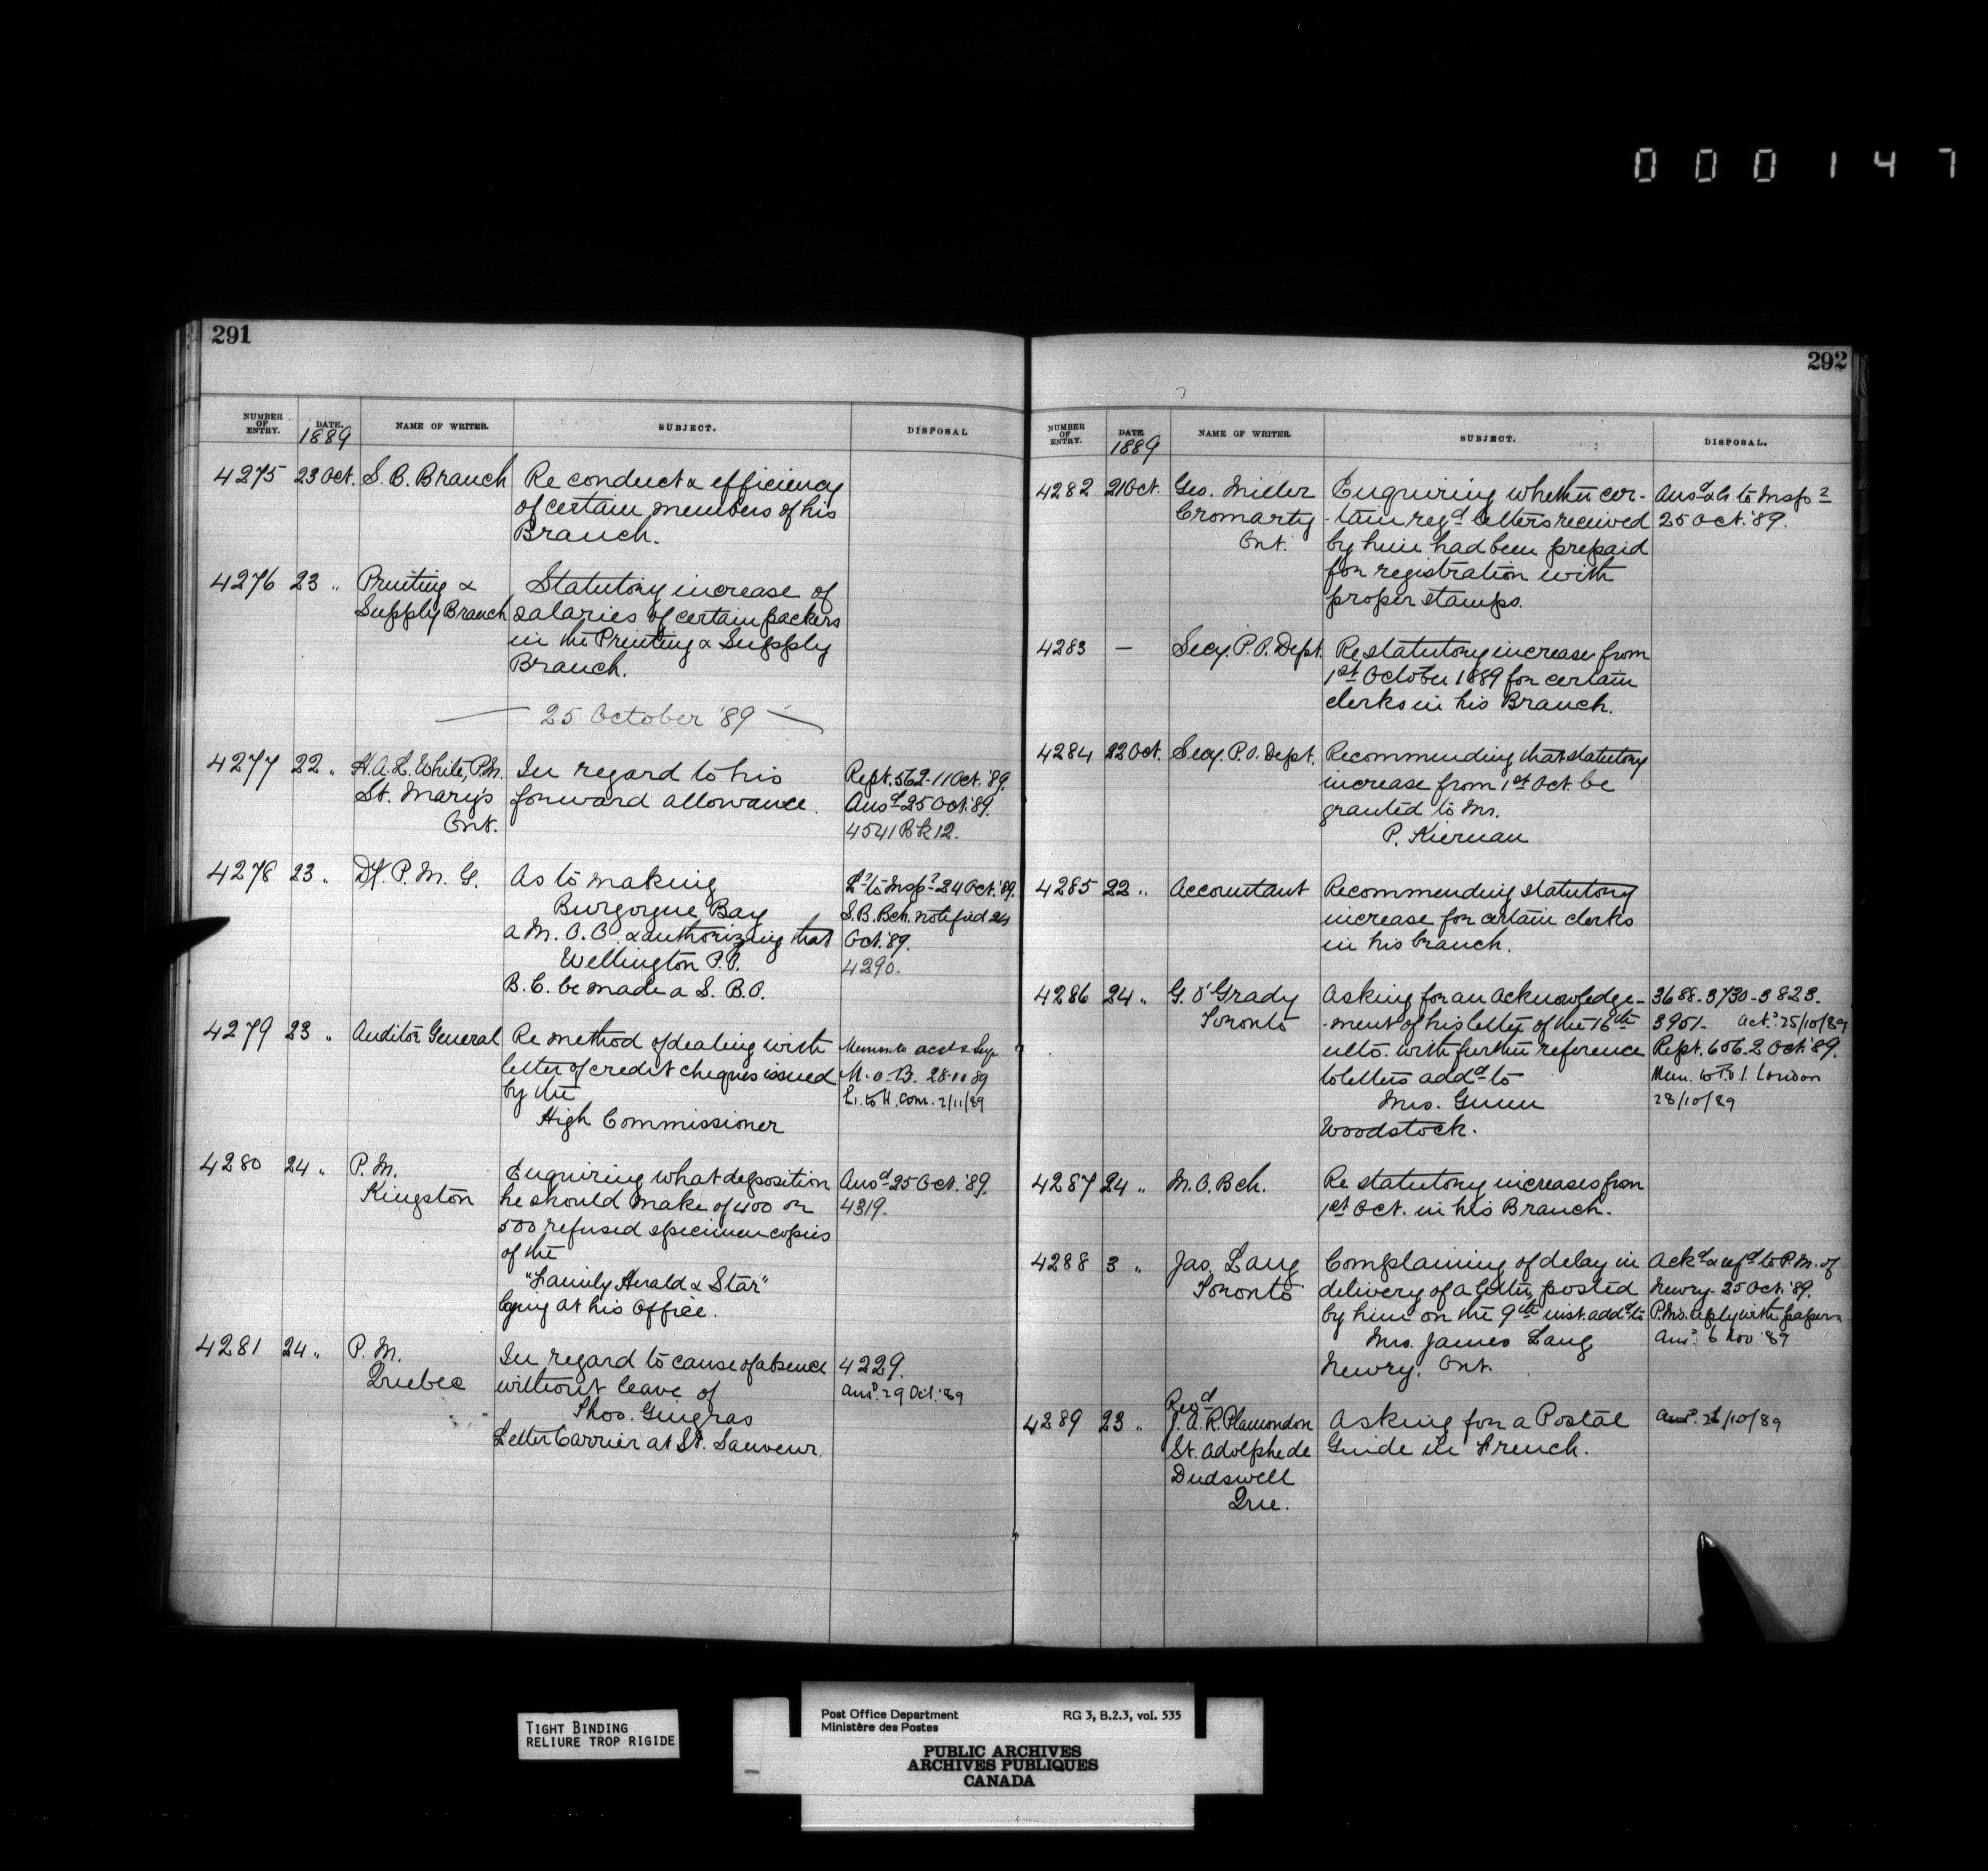 000147
291
NUMBER OF ENTRY. DATE. 1889 NAME OF WRITER. SUBJECT. DISPOSAL
4275 23 Oct. S. B. Branch Re conduct & efficiency
of certain members of his
Branch.
4276 23 " Printing & Statutory increase of
Supply Branch salaries of certain packers
in the Printing & Supply
Branch.
— 25 October '89 —
4277 22 " H.A.L. White, P.M. In regard to his Rept. 562-11 Oct. '89.
St. Mary's forward allowance. Ansd 25 Oct. '89.
Ont. 4541 Bk 12.
4278 23 " P. M. G. As to making Lr to Inspr 24 Oct. '89.
Burgoyne Bay S.B. Bch. notified 24
a M. O. O. & authorizing that Oct. '89.
Wellington P.O. 4290.
B. C. be made a S. B. O.
4279 23 " Auditor General Re method of dealing with Memo to acct & Supt
letter of credit cheques issued M.O.B. 28.10.89
by the L. to H. Com. 2/11/89
High Commissioner
4280 24 " P. M. Enquiring what deposition Ansd 25 Oct. '89.
Kingston he should make of 400 or 4319.
500 refused specimen copies
of the
"Family Herald & Star"
lying at his Office.
4281 24 " P. M. In regard to cause of absence 4229.
Quebec without leave of Ansd. 29 Oct. '89
Thos. Gingras
Letter Carrier at St. Sauveur.
292
NUMBER OF ENTRY. DATE. 1889 NAME OF WRITER. SUBJECT. DISPOSAL.
4282 21 Oct. Geo. Miller Enquiring whether cer- Ansd & Lr. to Inspr
Cromarty -tain regd letters received 25 Oct. '89.
Ont. by him had been prepaid
for registration with
proper stamps.
4283 — Secy. P.O. Dept. Re statutory increase from
1st October 1889 for certain
clerks in his Branch.
4284 22 Oct. Secy. P.O. Dept. Recommending that statutory
increase from 1st Oct. be
granted to Mr.
P. Kiernan
4285 22 " Accountant Recommending statutory
increase for certain clerks
in his branch.
4286 24 " G. O'Grady Asking for an acknowledge- 3688-3730-3823.
Toronto -ment of his letter of the 16th 3901. Ackd. 25/10/89
ulto. with further reference Rept. 606-2 Oct. '89.
to letters addd to Mem. to P.O.I. London
Mrs. Gunn 28/10/89
Woodstock.
4287 24 " M. O. Bch. Re statutory increases from
1st Oct. in his Branch.
4288 3 " Jas. Lang Complaining of delay in Ackd & refd to P.M. of
Toronto delivery of a letter, posted Newry. 25 Oct. '89.
by him on the 9th inst. addd to P.M's. reply with papers
Mrs. James Lang Ansd. 6 Nov. '89
Newry. Ont.
Revd
4289 23 " J. A. R. Plamondon Asking for a Postal Ansd. 26/10/89
St. Adolphe de Guide in French.
Dudswell
Que.
TIGHT BINDING
RELIURE TROP RIGIDE
Post Office Department RG 3, B.2.3, vol. 535
Ministère des Postes
PUBLIC ARCHIVES
ARCHIVES PUBLIQUES
CANADA